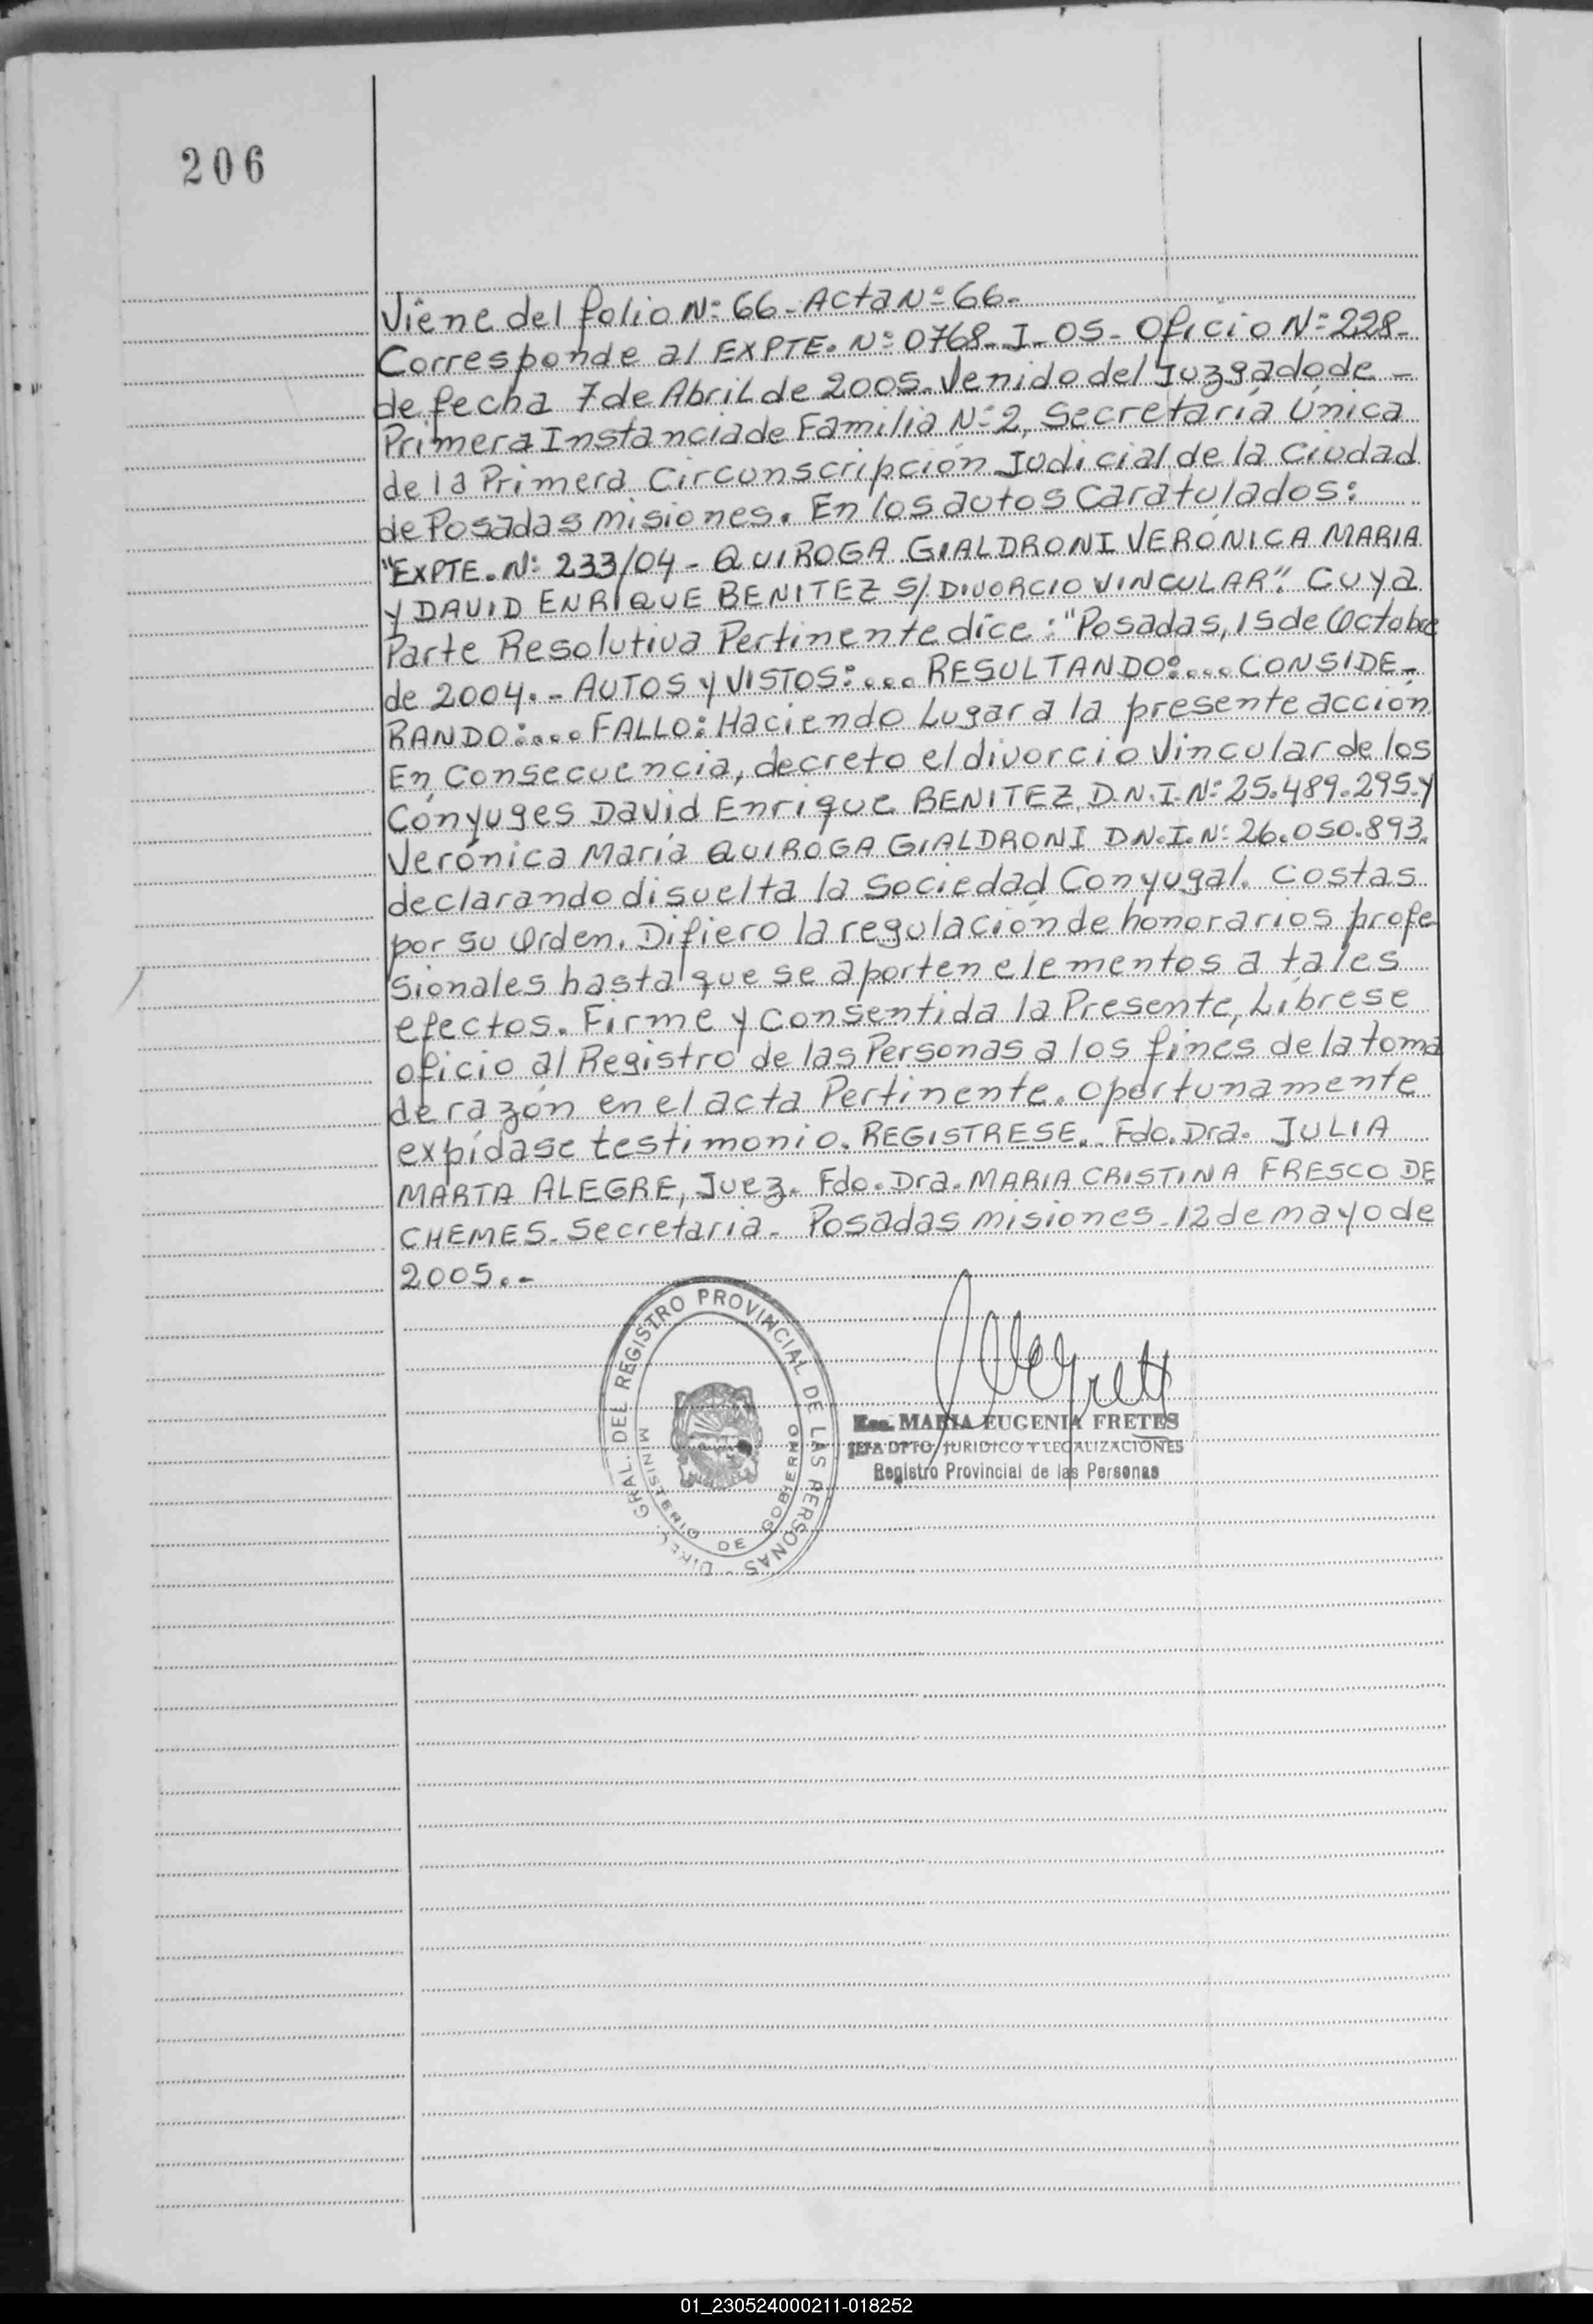 206
Viene del folio Nº 66 - Acta Nº 66 -
Corresponde al EXPTE. Nº 0768 - I - 05 - Oficio Nº 228 -
de fecha 7 de Abril de 2005. Venido del Juzgado de -
Primera Instancia de Familia Nº 2, Secretaría Única
de la Primera Circunscripción Judicial de la Ciudad
de Posadas Misiones. En los autos Caratulados:
"EXPTE. Nº 233/04 - QUIROGA GIALDRONI VERÓNICA MARIA
Y DAVID ENRIQUE BENITEZ S/ DIVORCIO VINCULAR". Cuya
Parte Resolutiva Pertinente dice: "Posadas, 15 de Octobre
de 2004. - AUTOS Y VISTOS: ... RESULTANDO: ... CONSIDE-
RANDO: .... FALLO: Haciendo Lugar a la presente acción
En Consecuencia, decreto el divorcio Vincular de los
Cónyuges David Enrique BENITEZ D.N.I. Nº 25.489.295. y
Verónica María QUIROGA GIALDRONI D.N.I. Nº 26.050.893.
declarando disuelta la Sociedad Conyugal. Costas
por su Orden. Difiero la regulación de honorarios profe
sionales hasta que se aporten elementos a tales
efectos. Firme y Consentida la Presente, Líbrese
oficio al Registro de las Personas a los fines de la toma
de razón en el acta Pertinente. Oportunamente
expídase testimonio. REGISTRESE. Fdo. Dra. JULIA
MARTA ALEGRE, Juez. Fdo. Dra. MARIA CRISTINA FRESCO DE
CHEMES. Secretaria - Posadas Misiones - 12 de mayo de
2005. -
DIREC. GRAL. DEL REGISTRO PROVINCIAL DE LAS PERSONAS -
MINISTERIO DE GOBIERNO
Esc. MARIA EUGENIA FRETES
JEFA DPTO. JURIDICO Y LEGALIZACIONES
Registro Provincial de las Personas
01_230524000211-018252